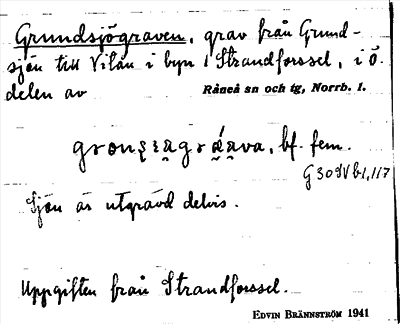 Grundsjögraven, grav från Grund-
sjön till Vitån i byn Strandforssel, i ö.
delen av Råneå sn och tg, Norrb. l.
bf. fem.
G 30 SV b1, 117
Sjön är utgrävd delvis.
Uppgiften från Strandforssel.
EDVIN BRÄNNSTRÖM 1941